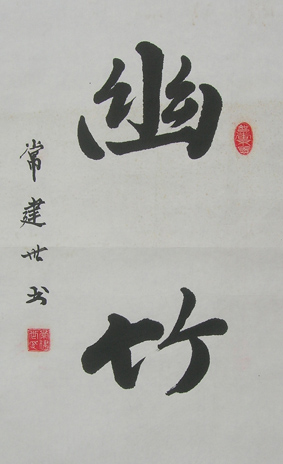 幽竹
常建世书